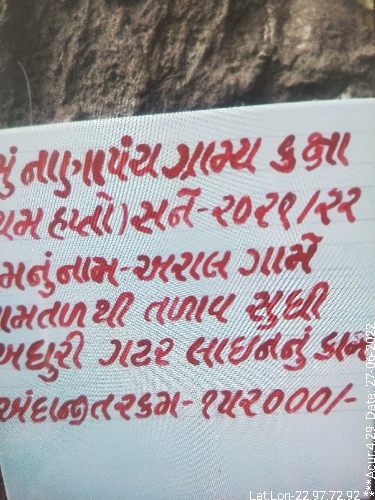 નાણાપંચ ગ્રામ્ય કક્ષા
હપ્તો) સને-૨૦૨૧/૨૨
નામ-અરાલ ગામે
થી તળાવ સુધી
અધુરી ગટર લાઇનનું કામ
અંદાજીત રકમ-૧૫૨૦૦૦/-
Lat:Lon-22.97:72.92 ***Acur:4.29 Date:27-06-2022